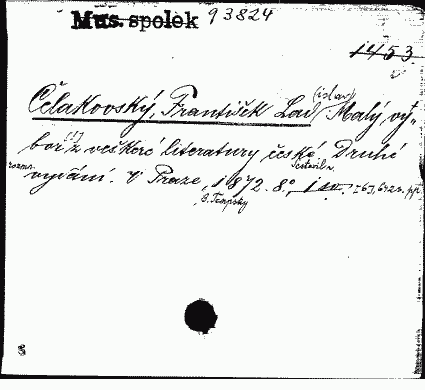 Mus. spolek 93824
1453.
Čelakovský, František Lad(islav) Malý vý-
bor (!) z veškeré literatury české. Druhé
rozmn. vydání. V Praze, 1872. 8°,
B. Tempsky
8